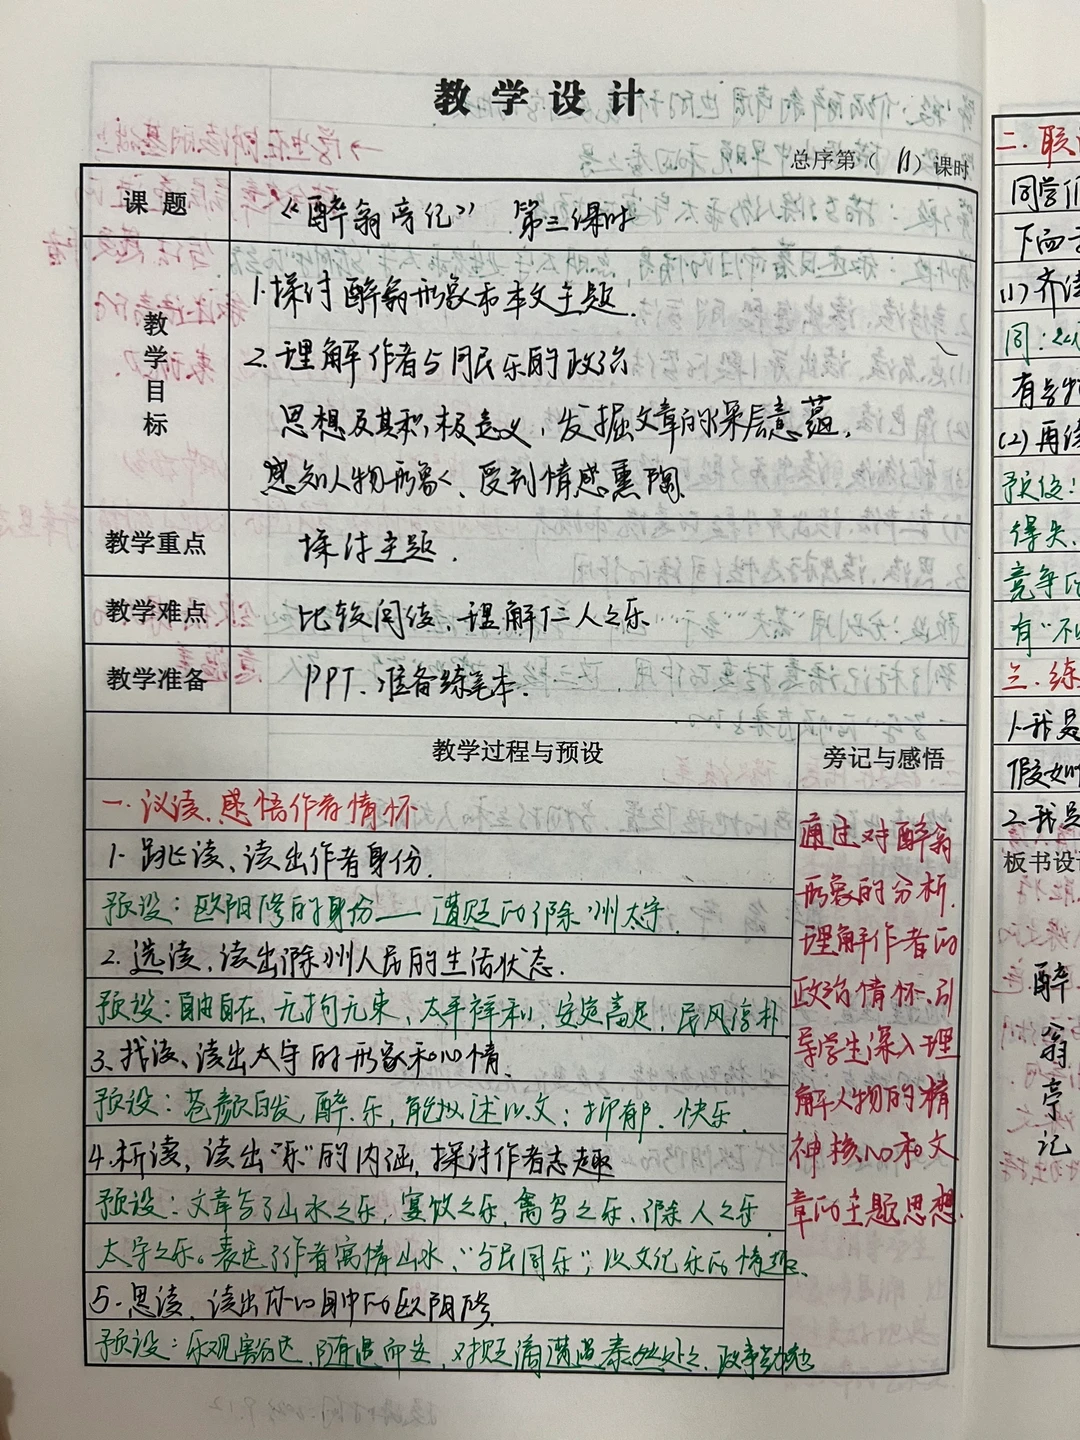 教学设计
总序第（11）课时
课题
《醉翁亭记》 第三课时
教学目标
1.探讨醉翁形象和本文主题.
2.理解作者与同民乐的政治
思想及其积极意义，发掘文章的深层意蕴，
感知人物形象、受到情感熏陶
教学重点
探讨主题.
教学难点
比较阅读、理解仨人之乐
教学准备
PPT、准备练笔本.
教学过程与预设
旁记与感悟
一.议读.感悟作者情怀
1.跳读、读出作者身份.
预设：欧阳修的身份——遭贬的滁州太守.
2.选读、读出滁州人民的生活状态.
预设：自由自在、无拘无束，太平祥和，安定富足，民风淳朴
3.找读、读出太守的形象和心情.
预设：苍颜白发，醉.乐，能以述以文；抑郁.快乐.
4.析读，读出“乐”的内涵，探讨作者志趣
预设：文章写了山水之乐，宴饮之乐，禽鸟之乐、滁人之乐
太守之乐。表达了作者寓情山水，“与民同乐”；以文记乐的情趣.
5.思读、读出你心目中的欧阳修
预设：乐观豁达，随遇而安，对贬谪遭遇泰然处之.政事勤勉
通过对醉翁
形象的分析.
理解作者的
政治情怀、引
导学生深入理
解人物的精
神核心和文
章的主题思想.
二.联
同学们
下面
(1)齐读
同：
有
(2)再读
预设：
得失.
竞争的
有“不
三.练
1.我是
假如
2.我是
板书设
醉翁亭记